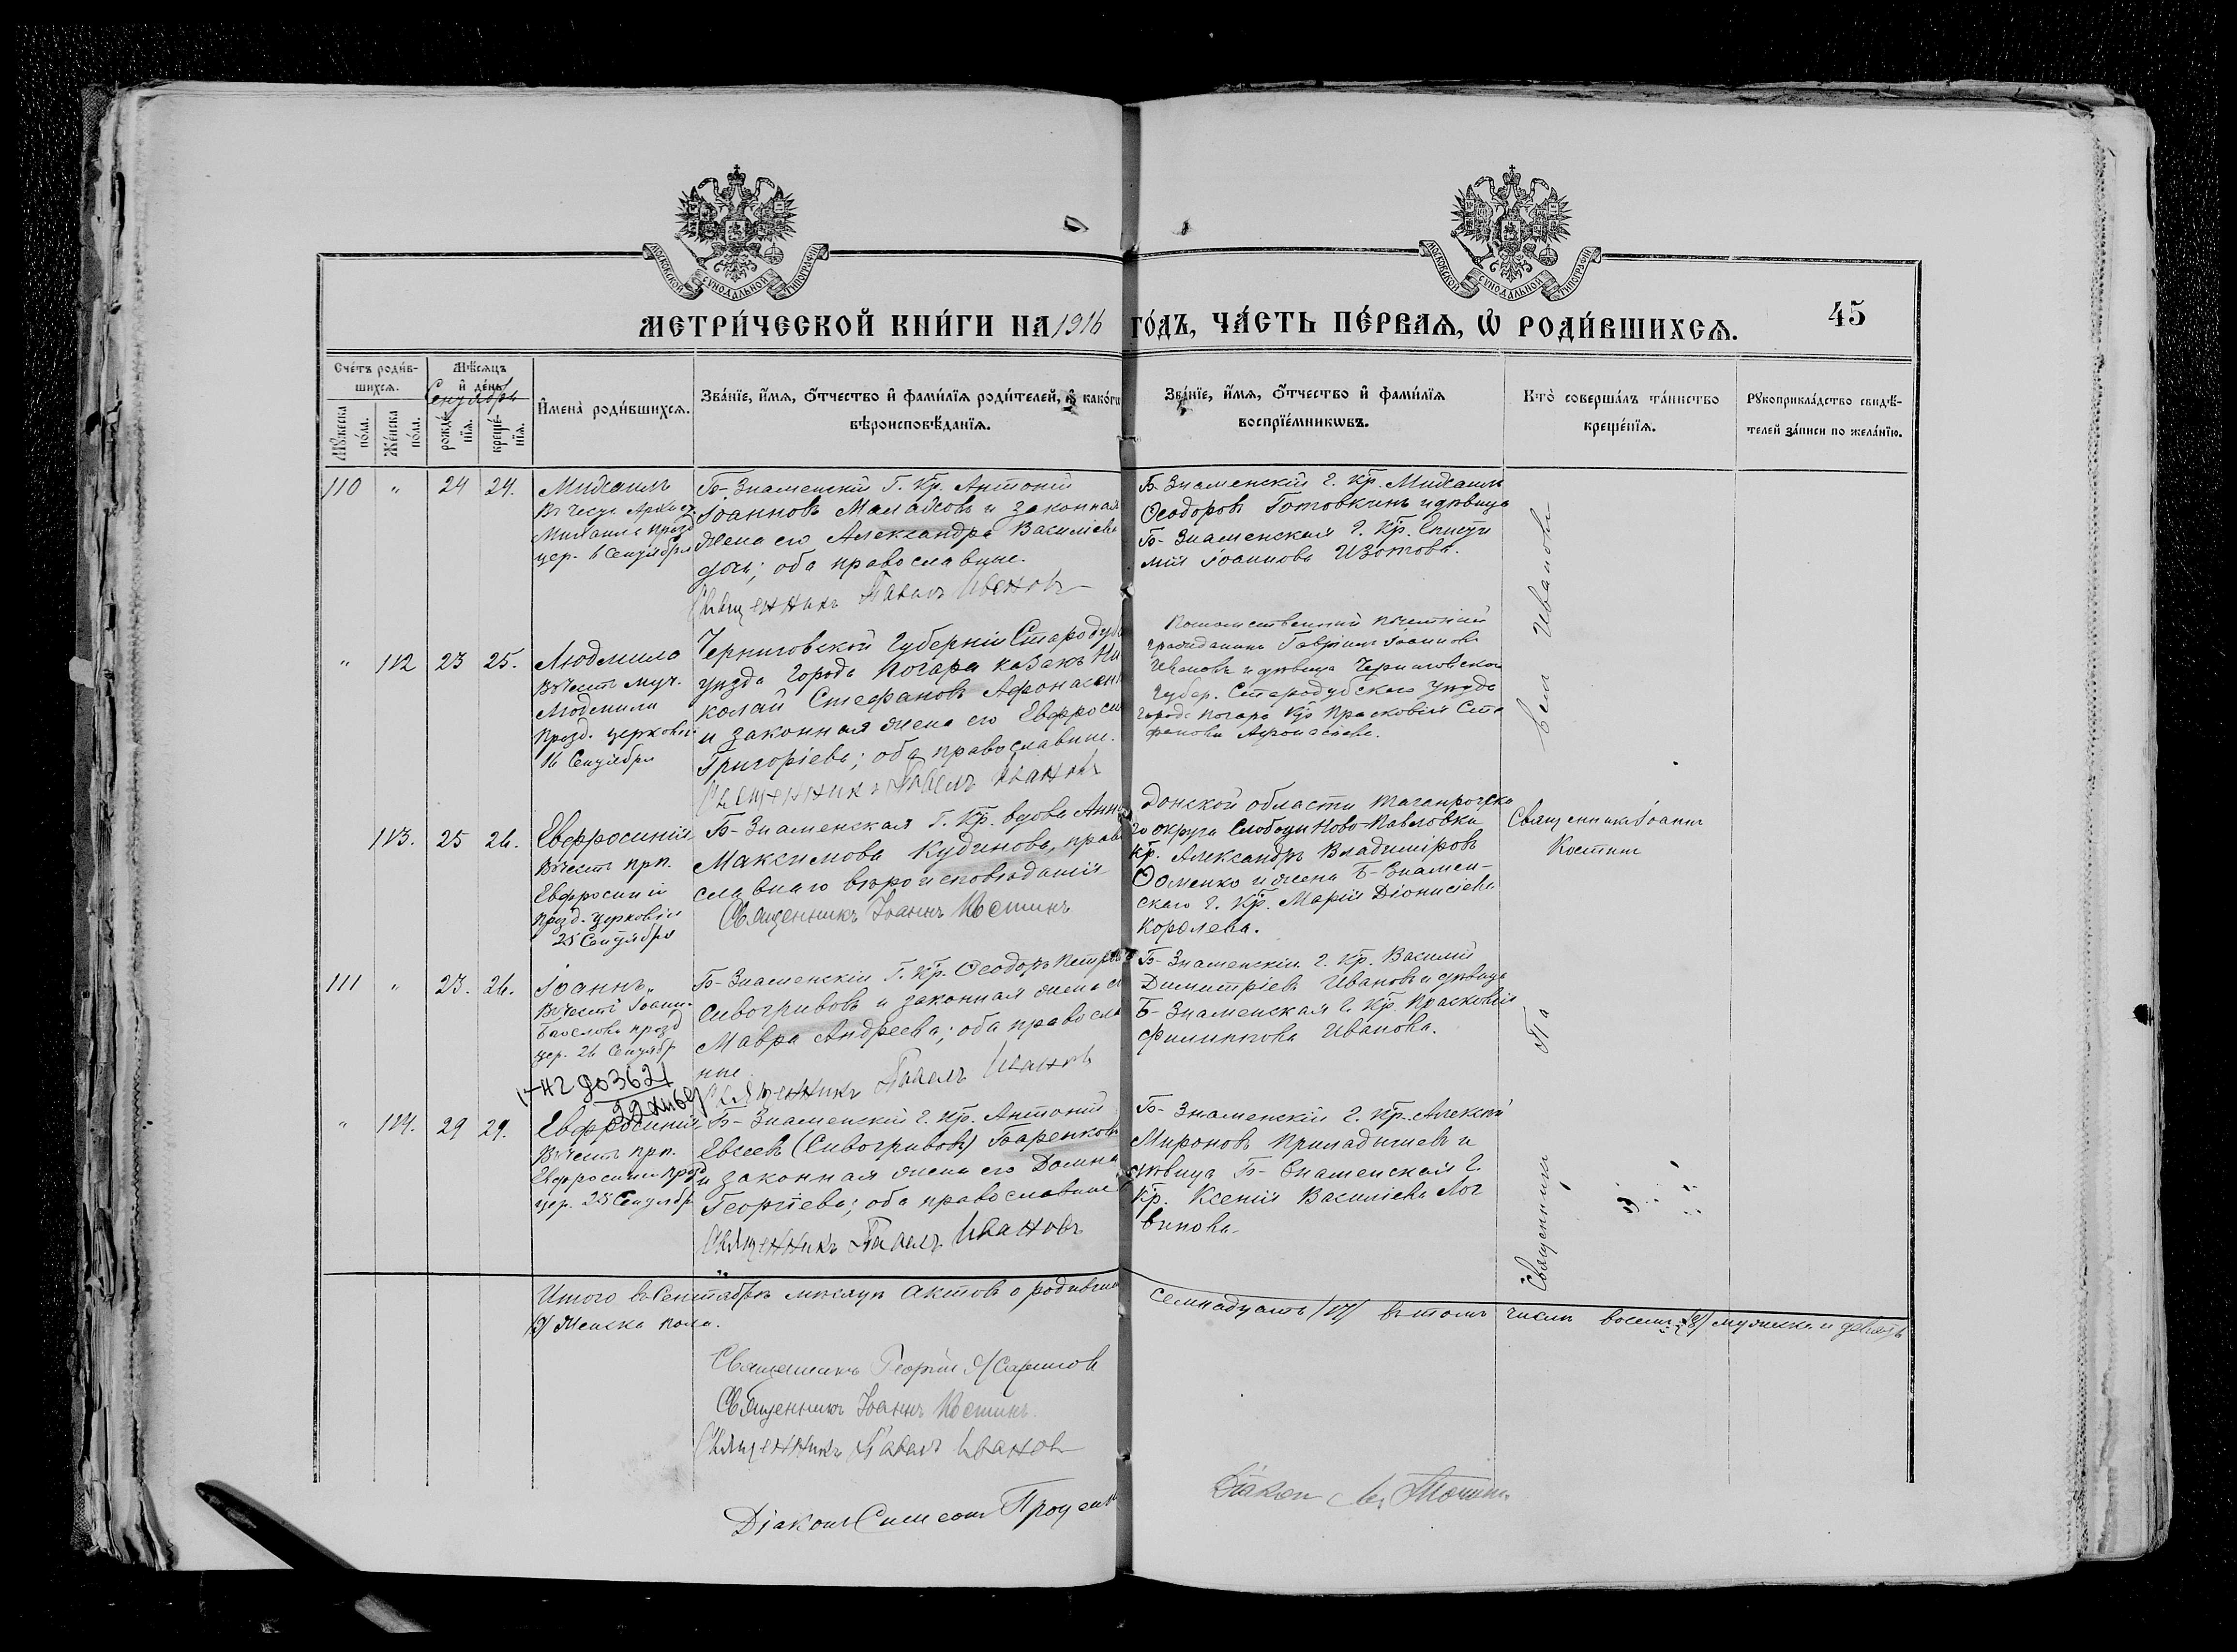 МОСКОВСКОЙ СѴНОДАЛЬНОЙ ТИПОГРАФІИ
МОСКОВСКОЙ СѴНОДАЛЬНОЙ ТИПОГРАФІИ
МЕТРИ́ЧЕСКОЙ КНИ́ГИ НА 1916
ГО́ДЪ, ЧА́СТЬ ПЕ́РВАЯ, Ѡ РОДИ́ВШИХСЯ.
45
Сче́тъ роди́в-
шихся.
Мѣ́сяцъ
и де́нь
Сентябрь
Мꙋ́жеска по́ла.
Же́нска по́ла.
рожде́нїя.
креще́нїя.
И҆мена̀ роди́вшихся.
Зва́нїе, и҆́мя, о҆́тчество и҆ фами́лїя роди́телей, и҆ како́гѡ
вѣроисповѣ́данїя.
Зва́нїе, и҆́мя, о҆́тчество и҆ фами́лїя
воспрїе́мникѡвъ.
Кто̀ соверша́лъ та́инство
креще́нїя.
Рꙋкоприкла́дство свидѣ́-
телей за́писи по жела́нїю.
110 " 24 24.
Михаилъ
Въ честь Архист.
Михаила празд
цер. 6 Сентября
Б-Знаменскій Г. Кр. Антоній
Іоанновъ Малаховъ и законная
жена его Александра Василіева
оба православные.
Священникъ Павелъ Ивановъ
Б-Знаменскій г. Кр. Михаилъ
Ѳеодоровъ Готовкинъ и дѣвица
Б-Знаменская г. Кр.
Іоаннова Изотова.
" 112 23 25.
Людмила
Въ честь муч.
Людмилы
празд. церковію
16 Сентября
Черниговской губерніи Стародуб
уѣзда города Погара казакъ Ни
колай Стефановъ Афонасен
и законная жена его Евфроси
Григоріева; оба православные.
Священникъ Павелъ Ивановъ
Потомственный почетный
гражданинъ Гавріилъ Іоанновъ
Ивановъ и дѣвица Черниговской
губер. Стародубскаго уѣзда
города Погара Прасковія Сте
фанова
113. 25 26.
Евфросинія
Въ честь прп.
Евфросиніи
празд. церковію
25 Сентября
Б-Знаменская Г. Кр. вдова Анна
Максимова Кудинова, право
славнаго вѣроисповѣданія
Священникъ Іоаннъ Костинъ
Донской области Таганрогска
го округа Слободы Ново-Павловки
Кр. Александръ Владиміровъ
и жена Б-Знамен-
скаго г. Кр. Марія Діонисіева
Королева.
Священникъ Іоаннъ
Костинъ
111 " 23. 26.
Іоаннъ
Въ честь Іоанн.
Богослова празд
цер. 26 Сентябр
Б-Знаменскій Г. Кр. Ѳеодоръ Петровъ
Сивогривовъ и законная жена его
Мавра Андреева; оба правосла
ные
Священникъ Павелъ Ивановъ
Б-Знаменскій г. Кр. Василій
Димитріевъ Ивановъ и дѣвица
Б-Знаменская г. Кр. Прасковія
Филиппова Иванова.
1-42 до 3621
" 114. 29 29.
Евфросинія
Въ честь прп.
Евфросиніи празд
цер. 25 Сентябр
Б-Знаменскій г. Кр. Антоній
Евсеевъ (Сивогривовъ) Баренковъ
и законная жена его Домна
Георгіева; оба православные
Священникъ Павелъ Ивановъ
Б-Знаменскій г. Кр. Алексій
Мироновъ и
дѣвица Б-Знаменская г.
Кр. Ксенія Василіева Лог
винова.
Священникъ Павелъ Ивановъ
Итого въ Сентябрѣ мѣсяцѣ актовъ о родивши
семнадцать /17/ въ томъ числѣ восемь /8/ мужеска и девять
/9/ женска пола.
Священникъ Георгій
Священникъ Іоаннъ Костинъ.
Священникъ Павелъ Ивановъ
Діаконъ Симеонъ Проценк
Діаконъ